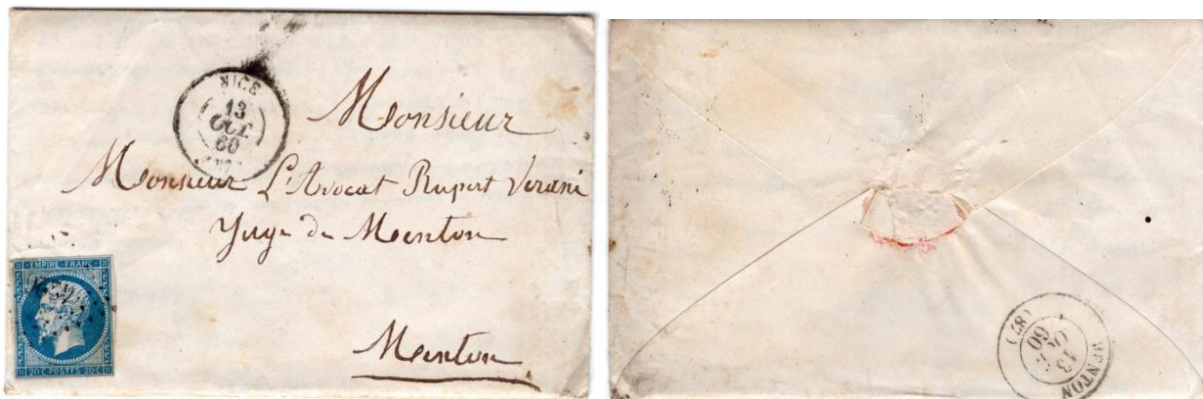 NICE
13
OCT.
60
Monsieur
Monsieur L'Avocat Rupert Verani
Juge de Menton
Menton
EMPIRE FRANC
20 C POSTES 20 C
MENTON
13
OCT
60
(87)